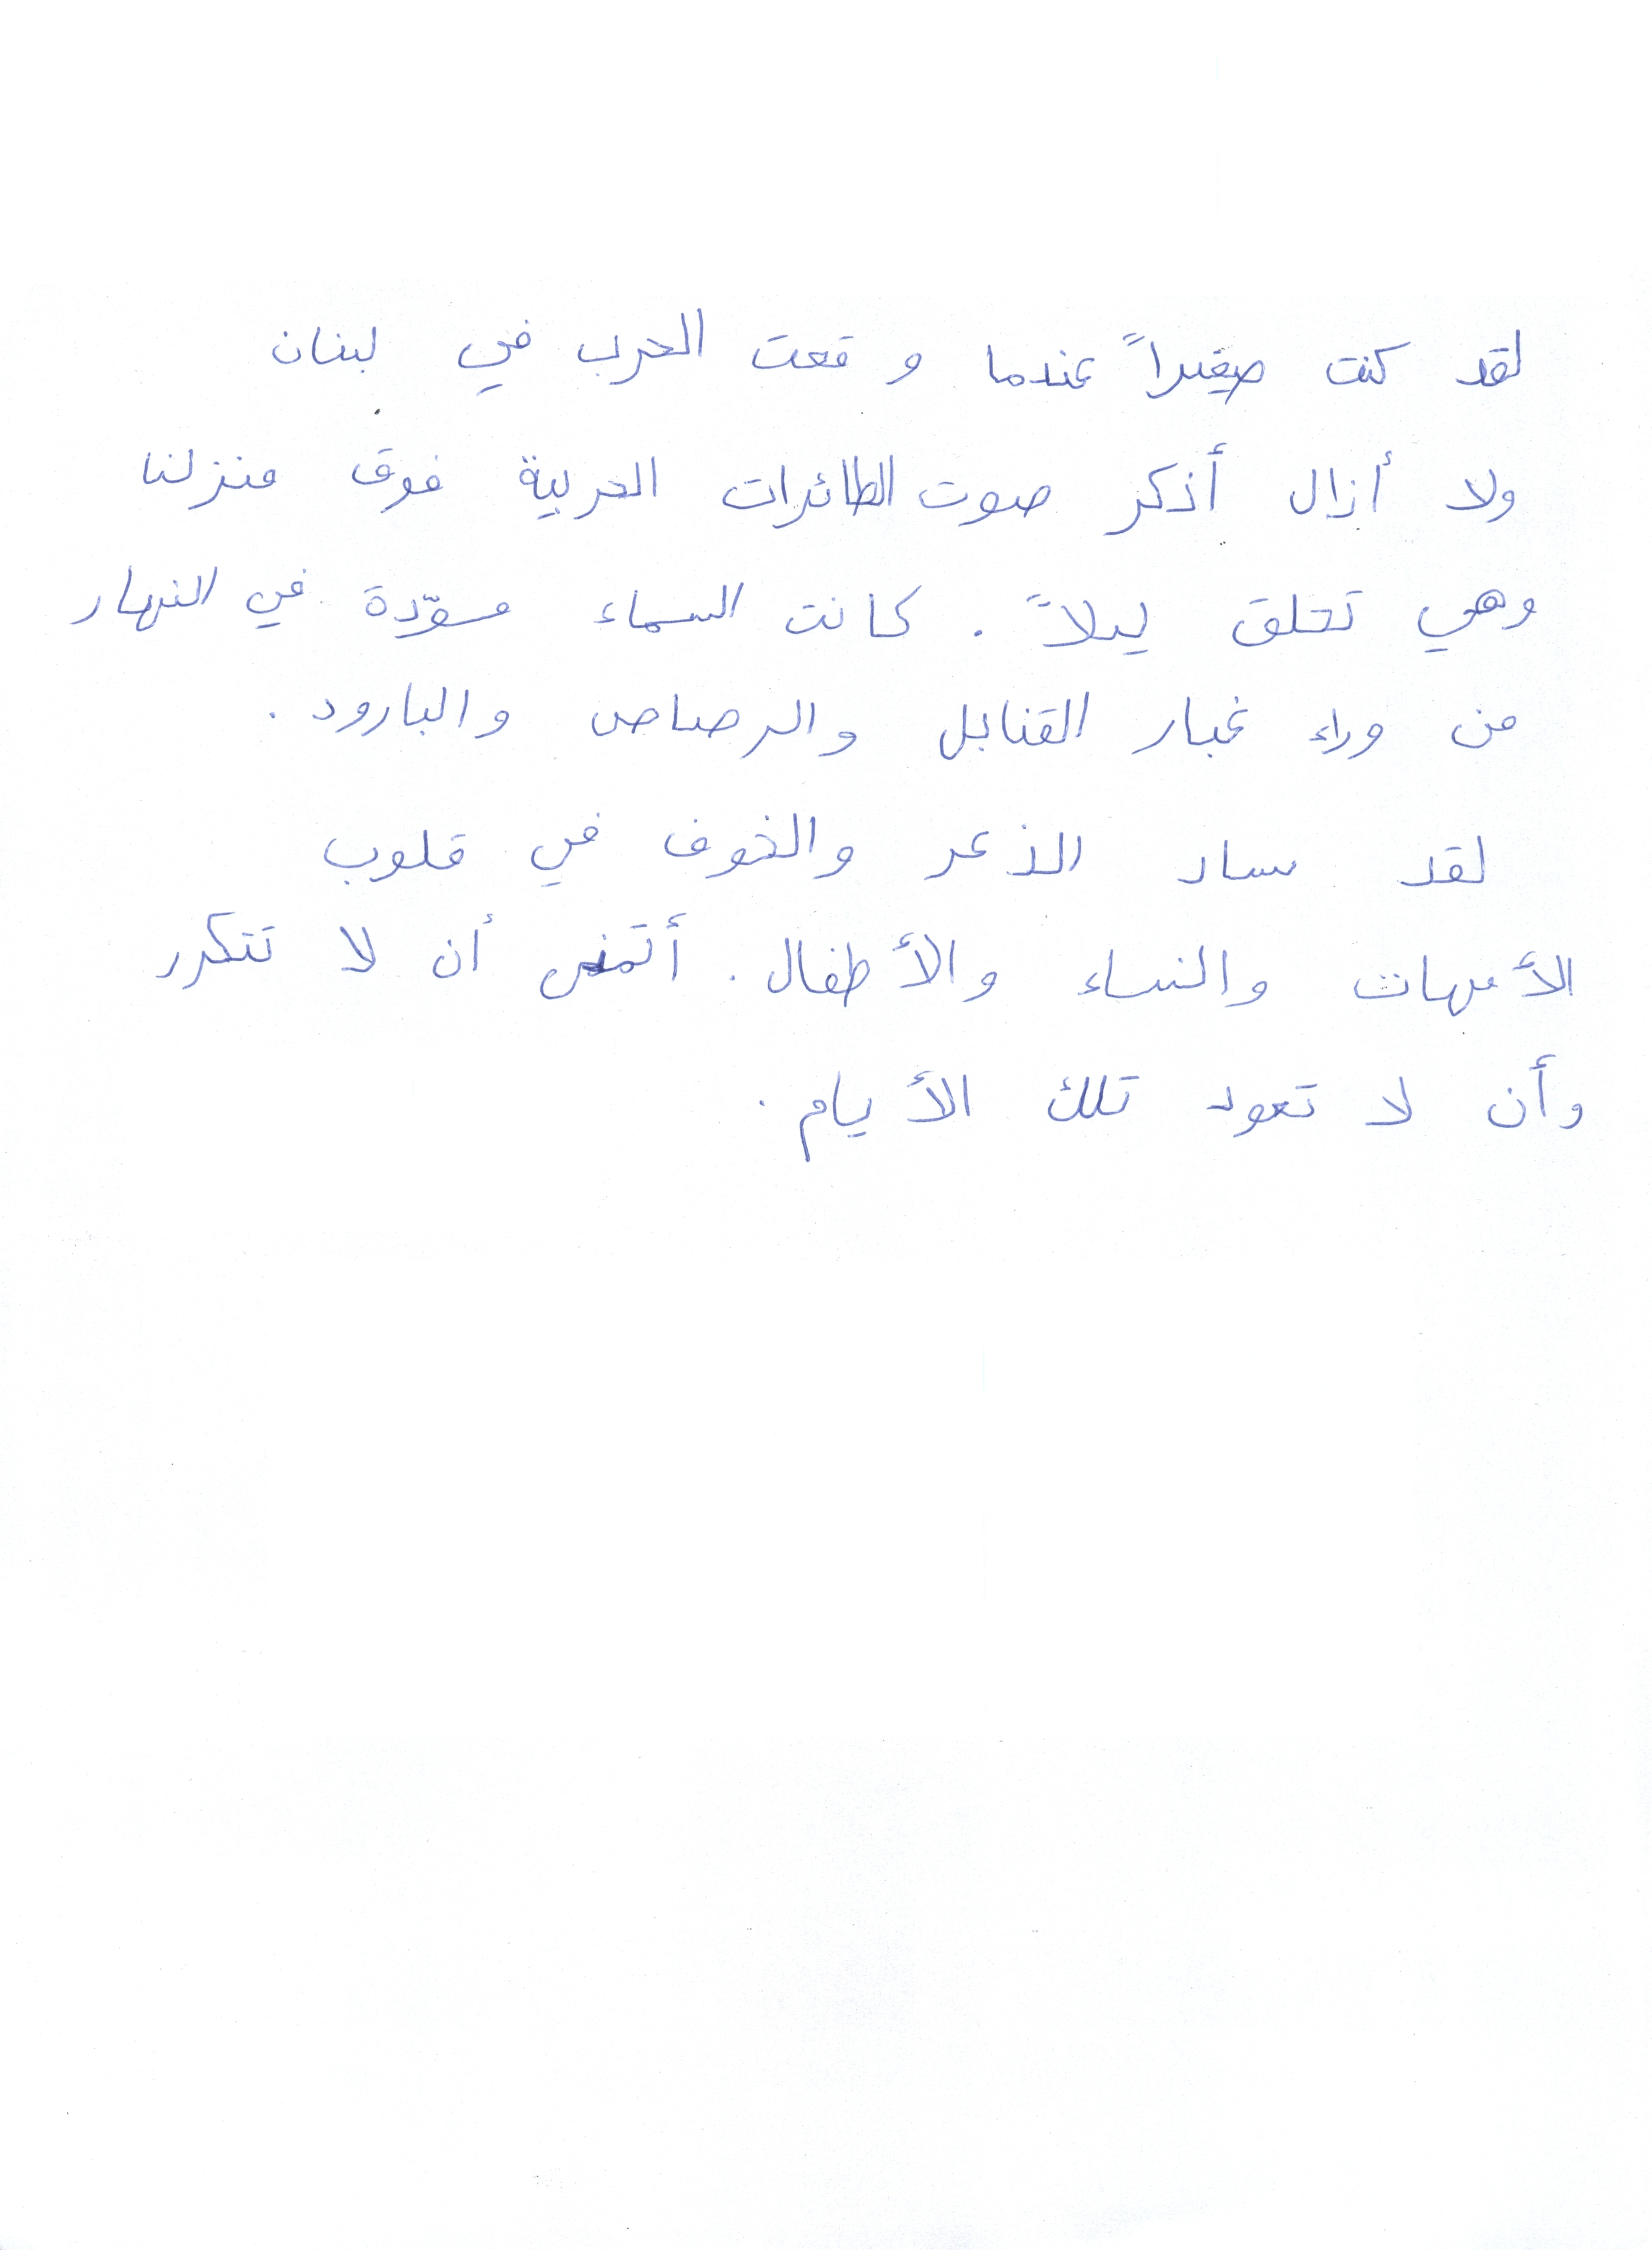 لقد كنت صغيراً عندما وقعت الحرب في لبنان
ولا أزال أذكر صوت الطائرات الحربية فوق منزلنا
وهي تحلق ليلاً . كانت السماء مسوّدة في النهار
من وراء غبار القنابل والرصاص والبارود .
لقد ساد الذعر والخوف في قلوب
الأمهات والنساء والأطفال . أتمنى أن لا تتكرر
وأن لا تعود تلك الأيام .